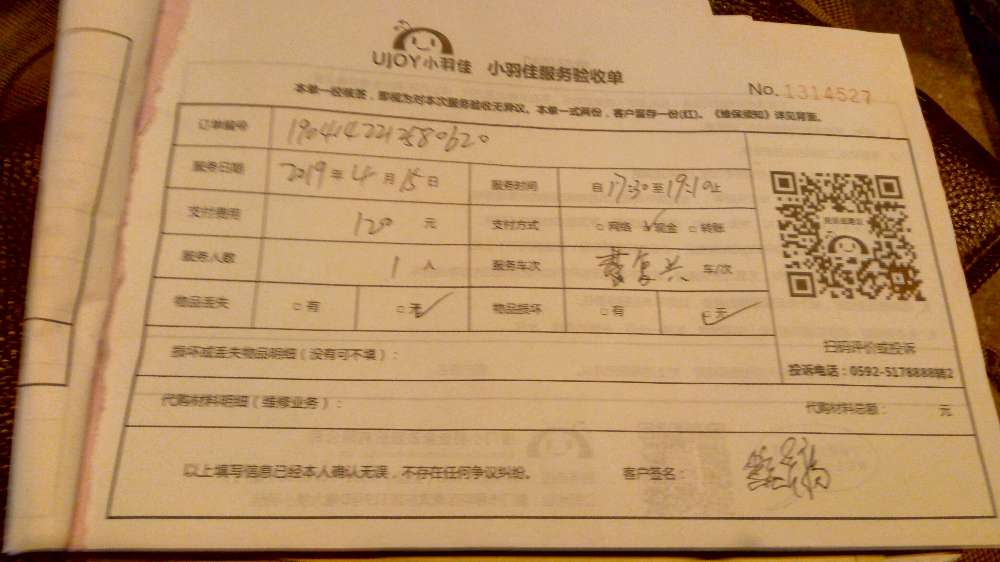 UJOY小羽佳 小羽佳服务验收单
No. 1314527
本单一经核签，即视为对本次服务验收无异议。本单一式两份，客户留存一份(红)。《维保须知》详见背面。
订单编号 190414221380620
服务日期 2019 年 4 月 15 日 服务时间 自 17:30 至 19:10 止
支付费用 120 元 支付方式 □ 网络 ☑ 现金 □ 转账
服务人数 1 人 服务车次 复兴 车/次
物品丢失 □ 有 ☑ 无 物品损坏 □ 有 ☑ 无
扫码评价或投诉
投诉电话：0592-5178888转2
损坏或丢失物品明细（没有可不填）：
代购材料明细（维修业务）： 代购材料总额： 元
以上填写信息已经本人确认无误，不存在任何争议纠纷。 客户签名：